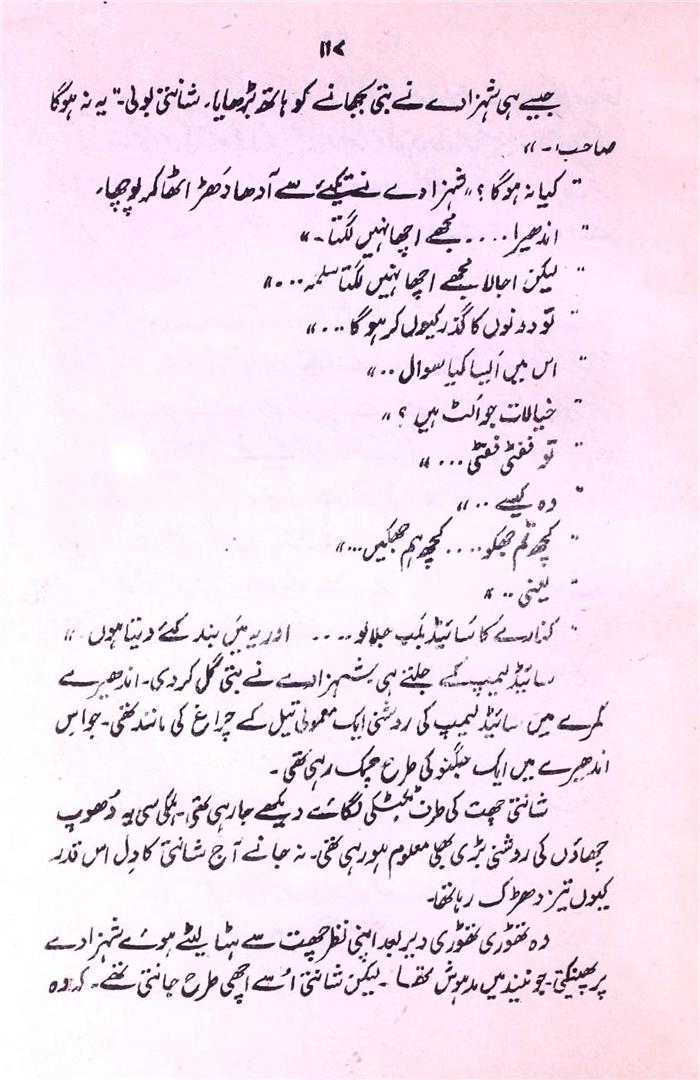 ۱۱۷
جیسے ہی شہزادے نے بتی بجھانے کو ہاتھ بڑھایا، شانتی بولی۔ "یہ نہ ہوگا
صاحب!۔"
"کیا نہ ہوگا؟" شہزادے نے تکئے سے آدھا دَھڑ اٹھا کر پوچھا۔
"اندھیرا.... مجھے اچھا نہیں لگتا۔"
"لیکن اجالا مجھے اچھا نہیں لگتا ..."
"تو دونوں کا گذر کیوں کر ہو گا ..."
"اس میں ایسا کیا سوال .."
"خیالات جو اُلٹ ہیں؟"
"تو ففٹی ففٹی ..."
"وہ کیسے .."
"کچھ تم جھکو .... کچھ ہم جھکیں..."
"یعنی .."
"کنارے کا سائیڈ لمپ جلا لو .... اور یہ میں بند کئے دیتا ہوں۔"
سائیڈ لیمپ کے جلتے ہی شہزادے نے بتی گل کر دی۔ اندھیرے
کمرے میں سائیڈ لیمپ کی روشنی ایک معمولی تیل کے چراغ کی مانند تھی۔ جو اس
اندھیرے میں ایک جگنو کی طرح چمک رہی تھی۔
شانتی چھت کی طرف ٹکٹکی لگائے دیکھے جا رہی تھی۔ ہلکی سی یہ دُھوپ
چھاؤں کی روشنی بڑی بھلی معلوم ہو رہی تھی۔ نہ جانے آج شانتی کا دِل اس قدر
کیوں تیز دھڑک رہا تھا۔
وہ تھوڑی تھوڑی دیر بعد اپنی نظر چھت سے ہٹا لیٹے ہوئے شہزادے
پر پھینکتی۔ جو نیند میں مدہوش تھا۔ لیکن شانتی اُسے اچھی طرح جانتی تھے۔ کہ وہ